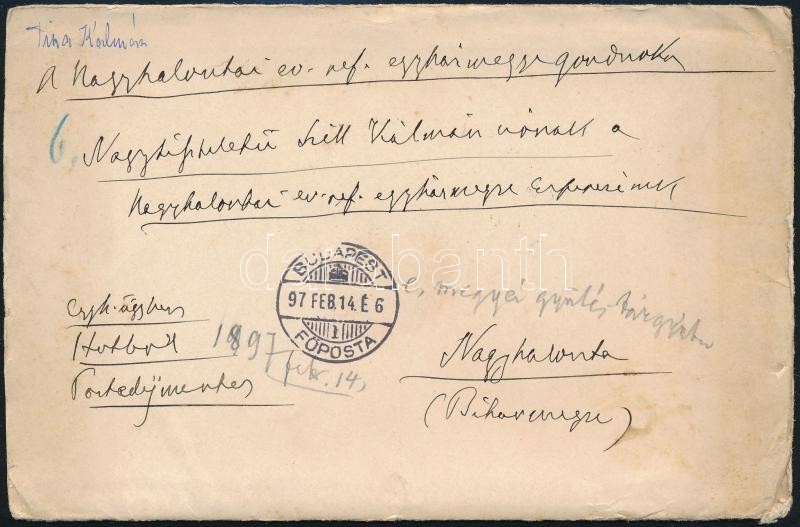 Tisza Kálmán
A Nagyszalontai ev. ref. egyházmegye gondnoka
6.
Nagytiszteletű Széll Kálmán úrnak a
Nagyszalontai ev. ref. egyházmegye Esperesének
BUDAPEST
97 FEB. 14. É 6
1
FŐPOSTA
e. megyei gyűlés tárgyában
Egyh. ügyben
Hivatból
Portodíjmentes
1897
febr. 14.
Nagyszalonta
(Biharmegye)
darabanth